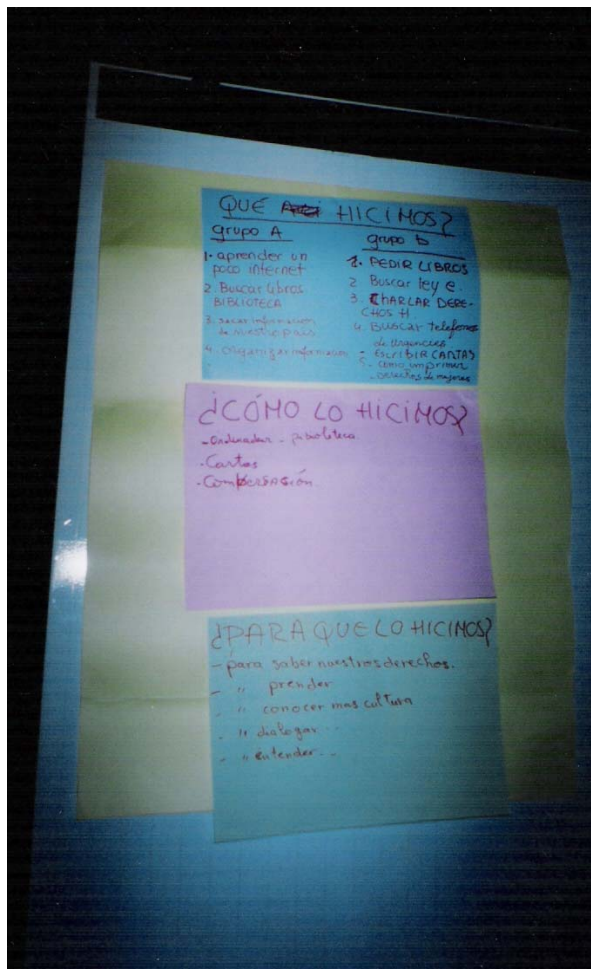 QUÉ HICIMOS?
grupo A
1. aprender un
poco internet
2. Buscar libros
BIBLIOTECA
3. sacar informacion
de nuestro pais
4. Organizar informacion
grupo b
1. PEDIR LIBROS
2 Buscar ley e.
3. CHARLAR DERE-
CHOS H
4. BUSCAR telefonos
de Urgencies
- ESCRIBIR CARTAS
5. como imprimir
- derechos de mujeres
¿CÓMO LO HICIMOS?
- Ordenador -
- Cartas
- Conversación
¿PARA QUE LO HICIMOS?
- para saber nuestros derechos.
- " prender
- " conocer mas cultura
- " dialogar ..
- " entender..